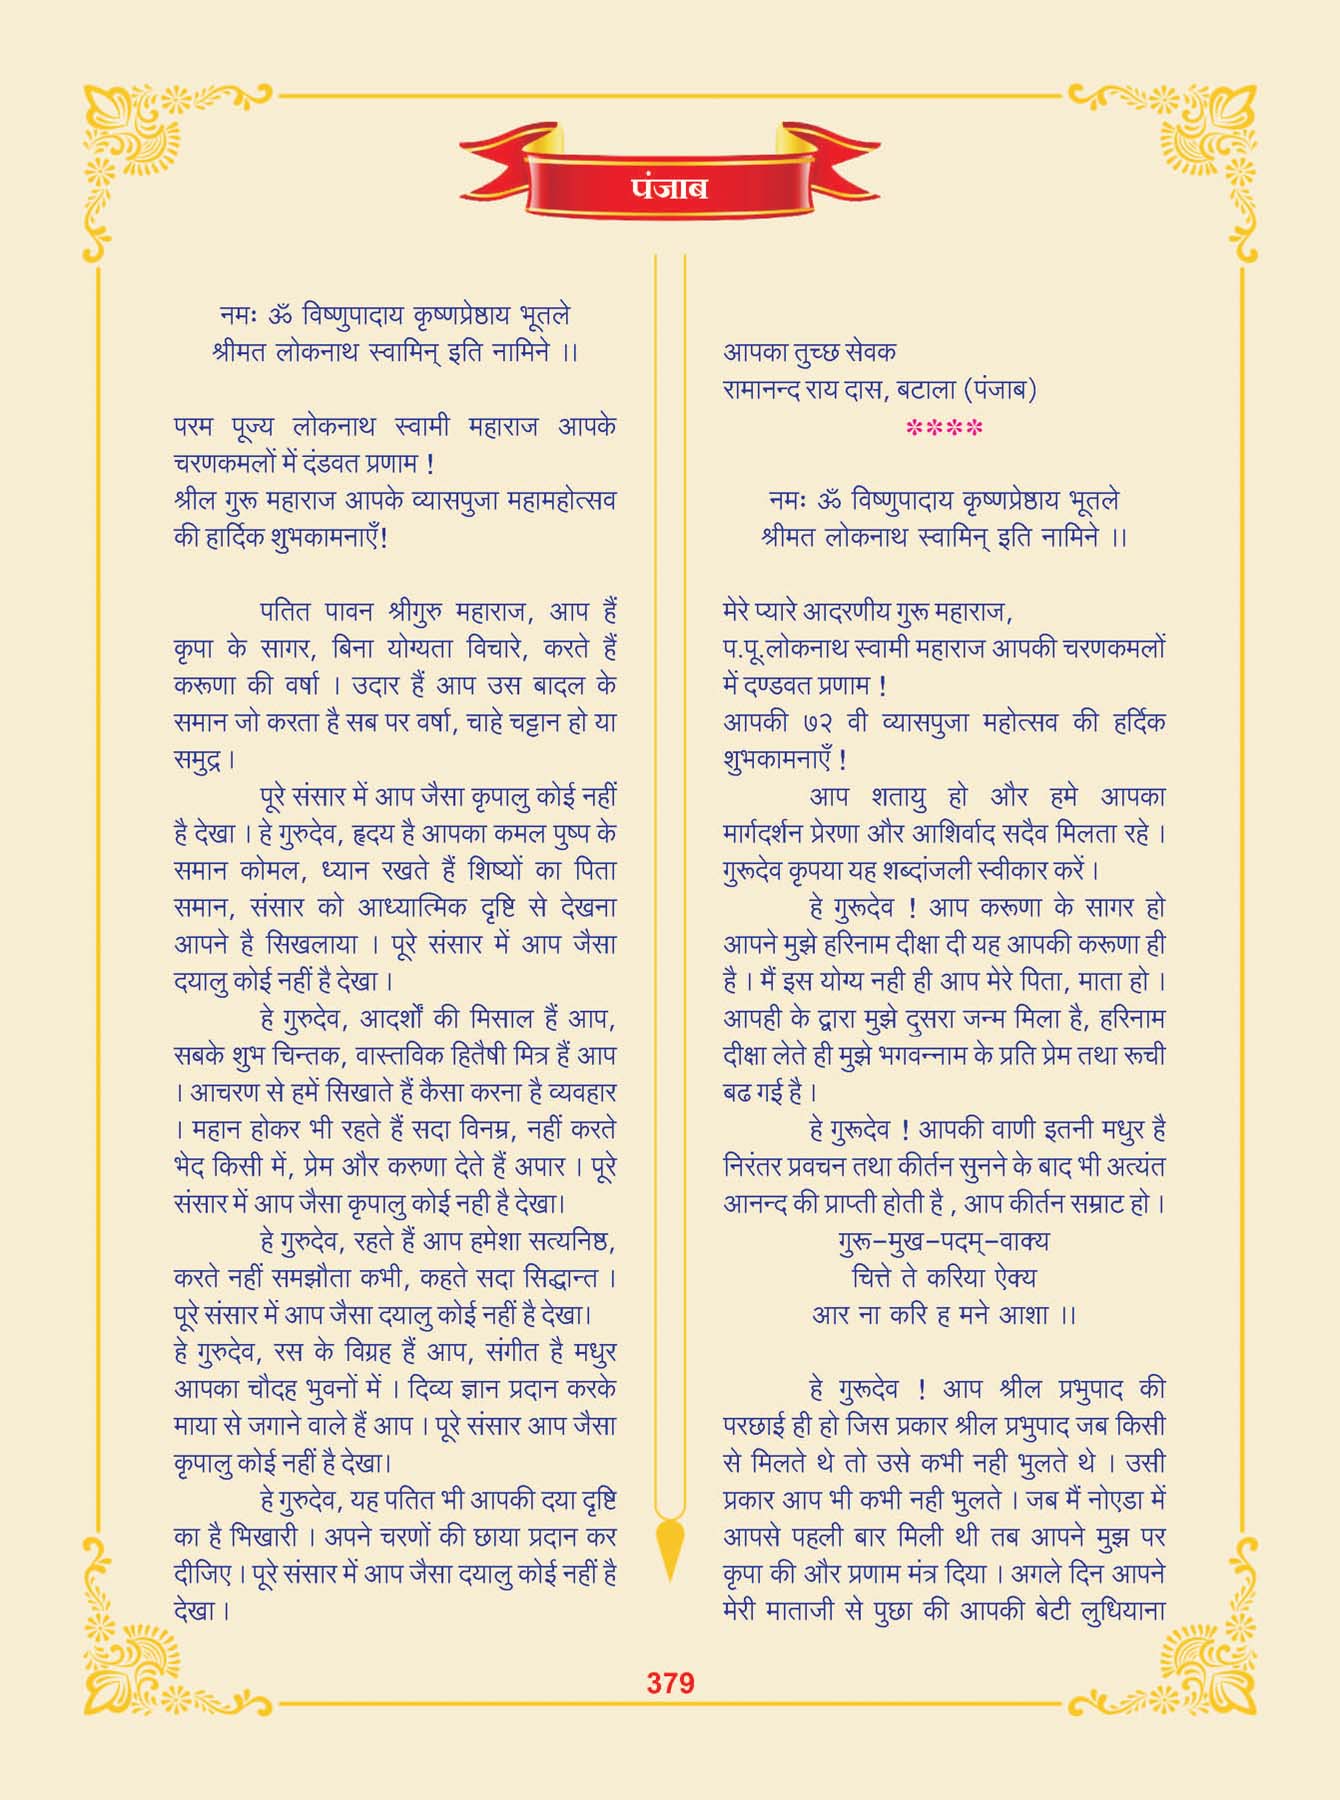 पंजाब
नमः ॐ विष्णुपादाय कृष्णप्रेष्ठाय भूतले
श्रीमत लोकनाथ स्वामिन् इति नामिने ।।
परम पूज्य लोकनाथ स्वामी महाराज आपके
चरणकमलों में दंडवत प्रणाम !
श्रील गुरू महाराज आपके व्यासपुजा महामहोत्सव
की हार्दिक शुभकामनाएँ!
पतित पावन श्रीगुरु महाराज, आप हैं
कृपा के सागर, बिना योग्यता विचारे, करते हैं
करूणा की वर्षा । उदार हैं आप उस बादल के
समान जो करता है सब पर वर्षा, चाहे चट्टान हो या
समुद्र ।
पूरे संसार में आप जैसा कृपालु कोई नहीं
है देखा । हे गुरुदेव, हृदय है आपका कमल पुष्प के
समान कोमल, ध्यान रखते हैं शिष्यों का पिता
समान, संसार को आध्यात्मिक दृष्टि से देखना
आपने है सिखलाया । पूरे संसार में आप जैसा
दयालु कोई नहीं है देखा ।
हे गुरुदेव, आदर्शों की मिसाल हैं आप,
सबके शुभ चिन्तक, वास्तविक हितैषी मित्र हैं आप
। आचरण से हमें सिखाते हैं कैसा करना है व्यवहार
। महान होकर भी रहते हैं सदा विनम्र, नहीं करते
भेद किसी में, प्रेम और करुणा देते हैं अपार । पूरे
संसार में आप जैसा कृपालु कोई नही है देखा।
हे गुरुदेव, रहते हैं आप हमेशा सत्यनिष्ठ,
करते नहीं समझौता कभी, कहते सदा सिद्धान्त ।
पूरे संसार में आप जैसा दयालु कोई नहीं है देखा।
हे गुरुदेव, रस के विग्रह हैं आप, संगीत है मधुर
आपका चौदह भुवनों में । दिव्य ज्ञान प्रदान करके
माया से जगाने वाले हैं आप । पूरे संसार आप जैसा
कृपालु कोई नहीं है देखा।
हे गुरुदेव, यह पतित भी आपकी दया दृष्टि
का है भिखारी । अपने चरणों की छाया प्रदान कर
दीजिए । पूरे संसार में आप जैसा दयालु कोई नहीं है
देखा ।
आपका तुच्छ सेवक
रामानन्द राय दास, बटाला (पंजाब)
****
नमः ॐ विष्णुपादाय कृष्णप्रेष्ठाय भूतले
श्रीमत लोकनाथ स्वामिन् इति नामिने ।।
मेरे प्यारे आदरणीय गुरू महाराज,
प.पू.लोकनाथ स्वामी महाराज आपकी चरणकमलों
में दण्डवत प्रणाम !
आपकी ७२ वी व्यासपुजा महोत्सव की हर्दिक
शुभकामनाएँ !
आप शतायु हो और हमे आपका
मार्गदर्शन प्रेरणा और आशिर्वाद सदैव मिलता रहे ।
गुरूदेव कृपया यह शब्दांजली स्वीकार करें ।
हे गुरूदेव ! आप करूणा के सागर हो
आपने मुझे हरिनाम दीक्षा दी यह आपकी करूणा ही
है । मैं इस योग्य नही ही आप मेरे पिता, माता हो ।
आपही के द्वारा मुझे दुसरा जन्म मिला है, हरिनाम
दीक्षा लेते ही मुझे भगवन्नाम के प्रति प्रेम तथा रूची
बढ गई है ।
हे गुरूदेव ! आपकी वाणी इतनी मधुर है
निरंतर प्रवचन तथा कीर्तन सुनने के बाद भी अत्यंत
आनन्द की प्राप्ती होती है , आप कीर्तन सम्राट हो ।
गुरू-मुख-पदम्-वाक्य
चित्ते ते करिया ऐक्य
आर ना करि ह मने आशा ।।
हे गुरूदेव ! आप श्रील प्रभुपाद की
परछाई ही हो जिस प्रकार श्रील प्रभुपाद जब किसी
से मिलते थे तो उसे कभी नही भुलते थे । उसी
प्रकार आप भी कभी नही भुलते । जब मैं नोएडा में
आपसे पहली बार मिली थी तब आपने मुझ पर
कृपा की और प्रणाम मंत्र दिया । अगले दिन आपने
मेरी माताजी से पुछा की आपकी बेटी लुधियाना
379